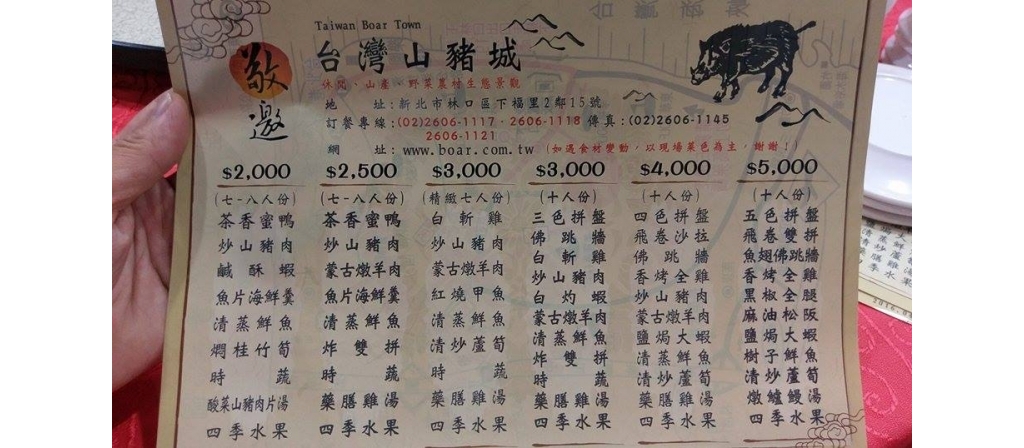 Taiwan Boar Town
敬邀
台灣山豬城
休閒、山產、野菜農村生態景觀
地 址:新北市林口區下福里2鄰15號
訂餐專線:(02)2606-1117·2606-1118 傳真:(02)2606-1145
2606-1121
網 址:www.boar.com.tw (如遇食材變動,以現場菜色為主,謝謝!)
$2,000
(七-八人份)
茶香蜜鴨
炒山豬肉
鹹酥蝦
魚片海鮮羹
清蒸鮮魚
燜桂竹筍
時蔬
酸菜山豬肉片湯
四季水果
$2,500
(七-八人份)
茶香蜜鴨
炒山豬肉
蒙古燉羊肉
魚片海鮮羹
清蒸鮮魚
炸雙拼
時蔬
藥膳雞湯
四季水果
$3,000
(精緻七人份)
白斬雞
炒山豬肉
蒙古燉羊肉
紅燒甲魚
清蒸鮮魚
清炒蘆筍
時蔬
藥膳雞湯
四季水果
$3,000
(十人份)
三色拼盤
佛跳牆
白斬雞
炒山豬肉
白灼蝦
蒙古燉羊肉
清蒸鮮魚
炸雙拼
時蔬
藥膳雞湯
四季水果
$4,000
(十人份)
四色拼盤
飛卷沙拉
佛跳牆
香烤全雞
炒山豬肉
蒙古燉羊肉
鹽焗大蝦
清蒸鮮魚
清炒蘆筍
藥膳雞湯
四季水果
$5,000
(十人份)
五色拼盤
飛卷雙拼
魚翅佛跳牆
香烤全雞
黑椒全腿
麻油松阪
鹽焗大蝦
樹子鮮魚
清炒蘆筍
燉鱸鰻湯
四季水果